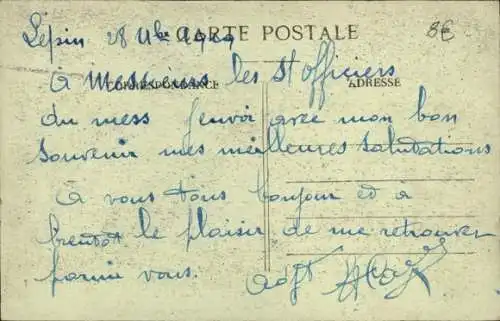 Lépin 28 9bre 1929
CARTE POSTALE
8€
CORRESPONDANCE
ADRESSE
à Messieurs les S/officiers
du mess j'envoi avec mon bon
souvenir mes meilleures salutations
à vous tous bonjour et à
bientôt le plaisir de me retrouver
parmi vous.
Adjt